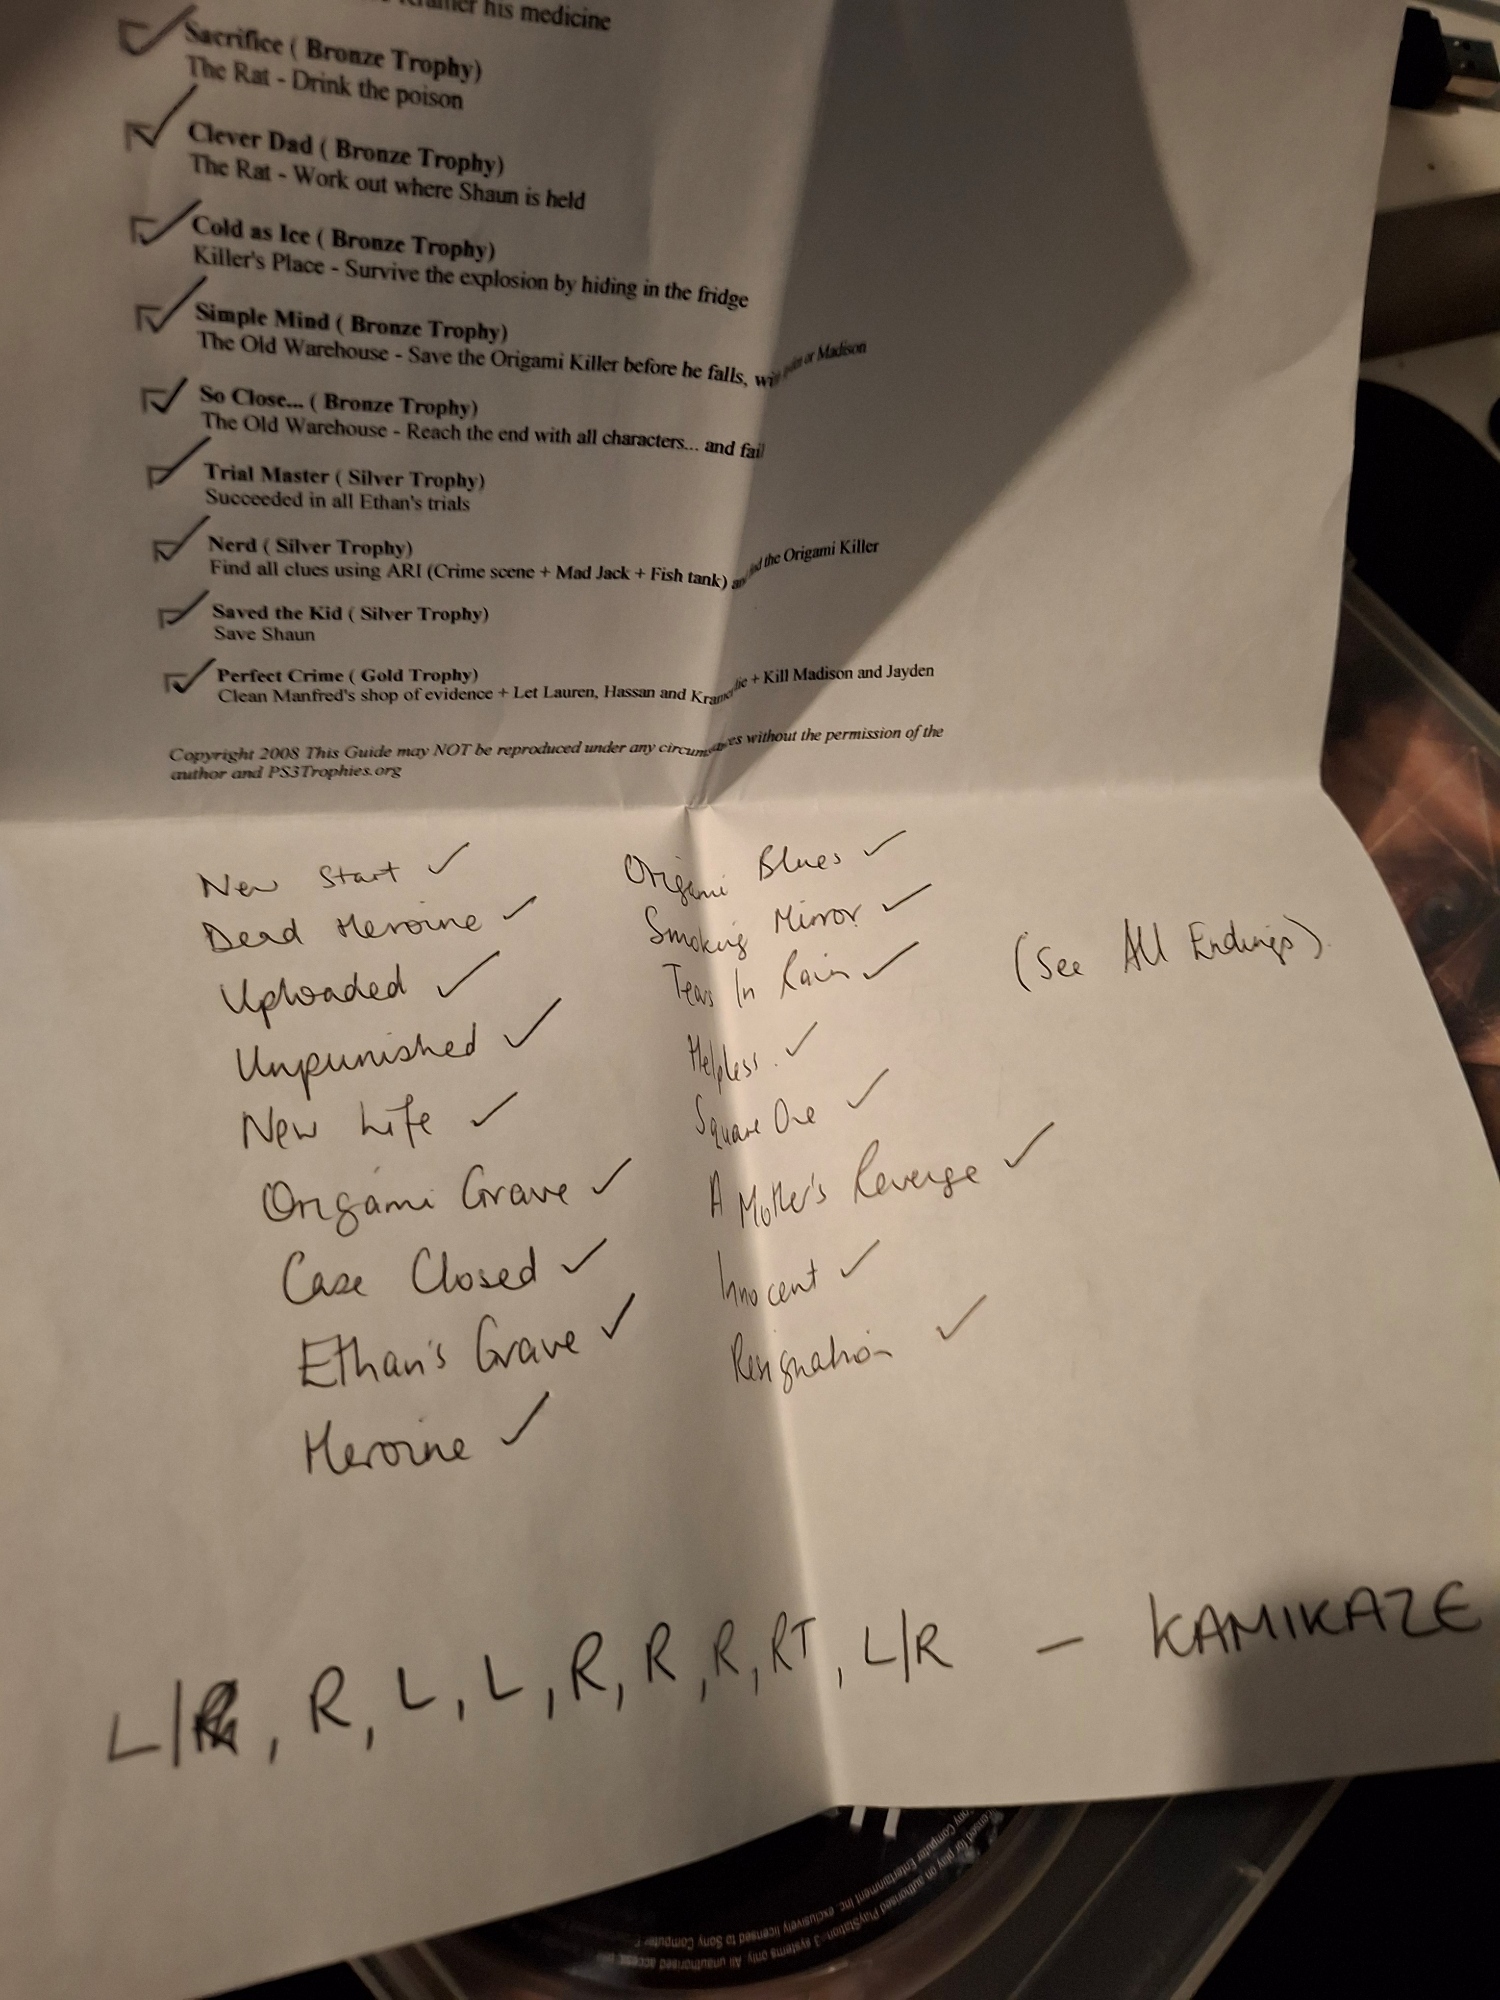 Kramer his medicine
Sacrifice ( Bronze Trophy)
The Rat - Drink the poison
Clever Dad ( Bronze Trophy)
The Rat - Work out where Shaun is held
Cold as Ice ( Bronze Trophy)
Killer's Place - Survive the explosion by hiding in the fridge
Simple Mind ( Bronze Trophy)
The Old Warehouse - Save the Origami Killer before he falls, with or Madison
So Close... ( Bronze Trophy)
The Old Warehouse - Reach the end with all characters... and fail
Trial Master ( Silver Trophy)
Succeeded in all Ethan's trials
Nerd ( Silver Trophy)
Find all clues using ARI (Crime scene + Mad Jack + Fish tank) and find the Origami Killer
Saved the Kid ( Silver Trophy)
Save Shaun
Perfect Crime ( Gold Trophy)
Clean Manfred's shop of evidence + Let Lauren, Hassan and Kramer die + Kill Madison and Jayden
Copyright 2008 This Guide may NOT be reproduced under any circumstances without the permission of the
author and PS3Trophies.org
New Start ✓
Dead Heroine ✓
Uploaded ✓
Unpunished ✓
New Life ✓
Origami Grave ✓
Case Closed ✓
Ethan's Grave ✓
Heroine ✓
Origami Blues ✓
Smoking Mirror ✓
Tears In Rain ✓
Helpless ✓
Square One ✓
A Mother's Revenge ✓
Innocent ✓
Resignation ✓
(See All Endings)
L/R, R, L, L, R, R, R, RT, L/R - KAMIKAZE
licensed for play on authorised PlayStation 3 systems only. All unauthorised access,
Sony Computer Entertainment Inc. exclusively licensed to Sony Computer